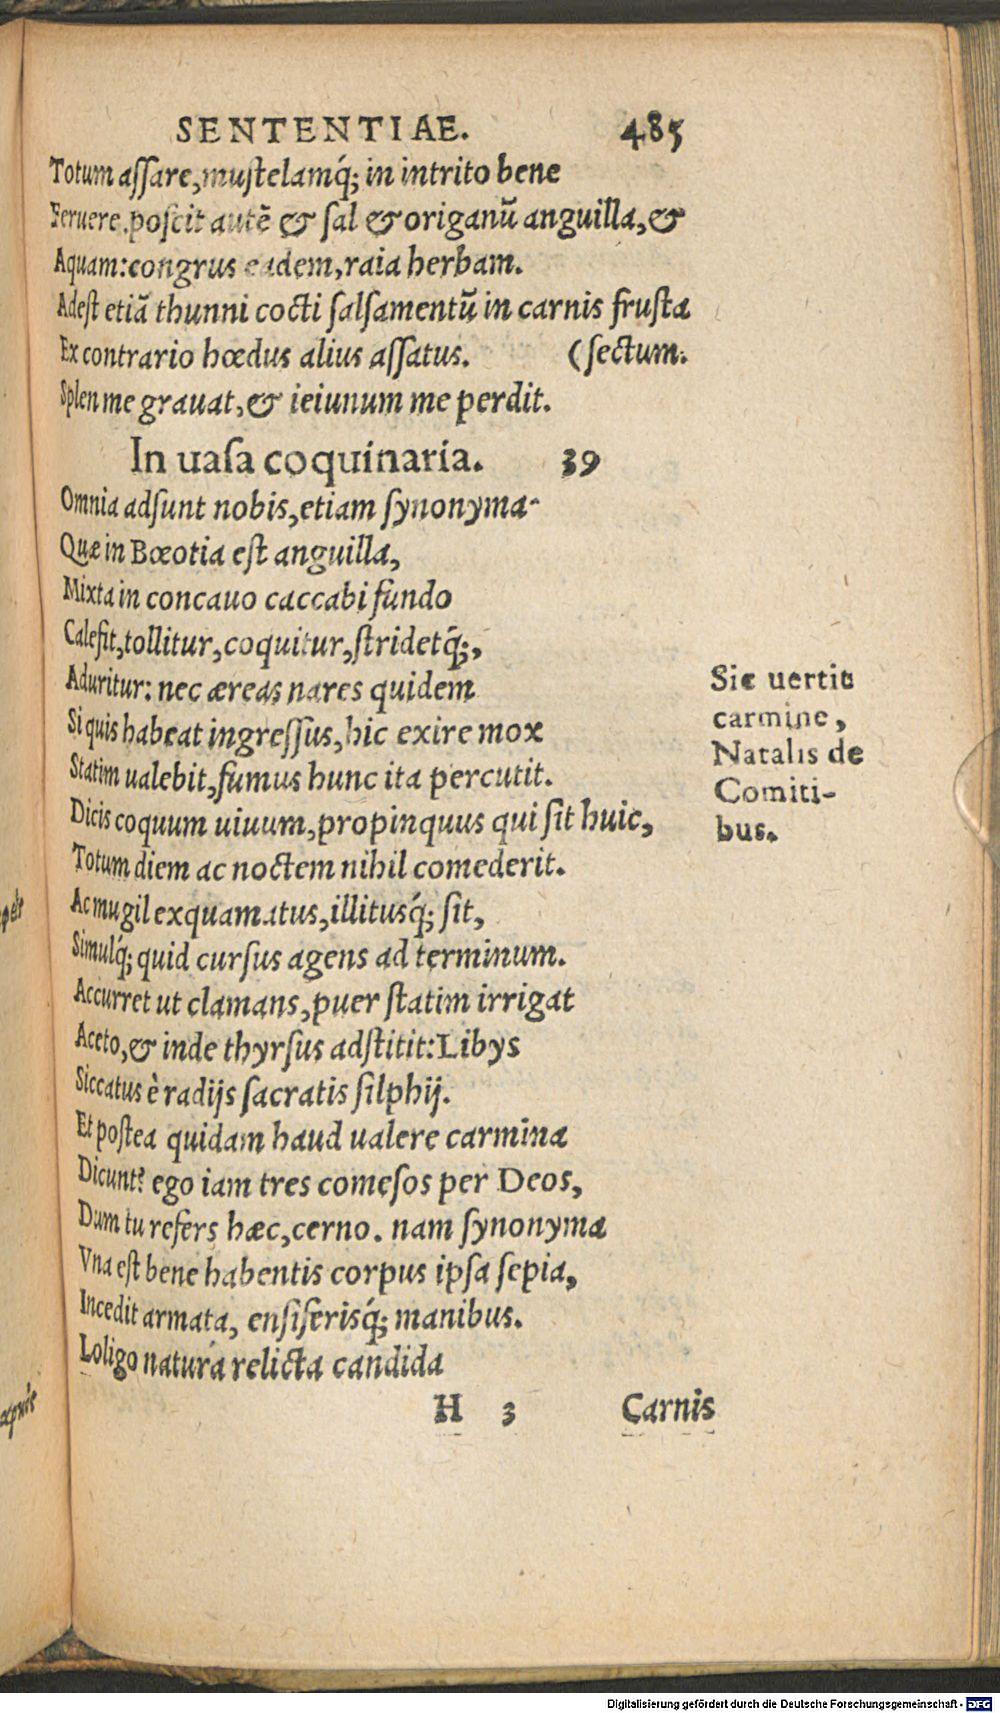 SENTENTIAE. 485
Totum aſſare, muſtelamq́; in intrito bene
Feruere. poſcit autē & ſal & origanū anguilla, &
Aquam: congrus eadem, raia herbam.
Adeſt etiā thunni cocti ſalſamentū in carnis fruſta
Ex contrario hœdus alius aſſatus. (ſectum.
Splen me grauat, & ieiunum me perdit.
In uaſa coquinaria. 39
Omnia adſunt nobis, etiam ſynonyma-
Quæ in Bœotia eſt anguilla,
Mixta in concauo caccabi fundo
Calefit, tollitur, coquitur, ſtridetq́;,
Aduritur: nec æreas nares quidem
Si quis habeat ingreſſus, hic exire mox
Statim ualebit, fumus hunc ita percutit.
Dicis coquum uiuum, propinquus qui ſit huic,
Totum diem ac noctem nihil comederit.
Ac mugil exquamatus, illitusq́; ſit,
Simulq́; quid curſus agens ad terminum.
Accurret ut clamans, puer ſtatim irrigat
Aceto, & inde thyrſus adſtitit: Libys
Siccatus è radijs ſacratis ſilphij.
Et poſtea quidam haud ualere carmina
Dicunt? ego iam tres comeſos per Deos,
Dum tu refers hæc, cerno. nam ſynonyma
Vna eſt bene habentis corpus ipſa ſepia,
Incedit armata, enſiferisq́; manibus.
Loligo natura relicta candida
H 3 Carnis
Sic uertit
carmine,
Natalis de
Comiti-
bus.
Digitalisierung gefördert durch die Deutsche Forschungsgemeinschaft - DFG